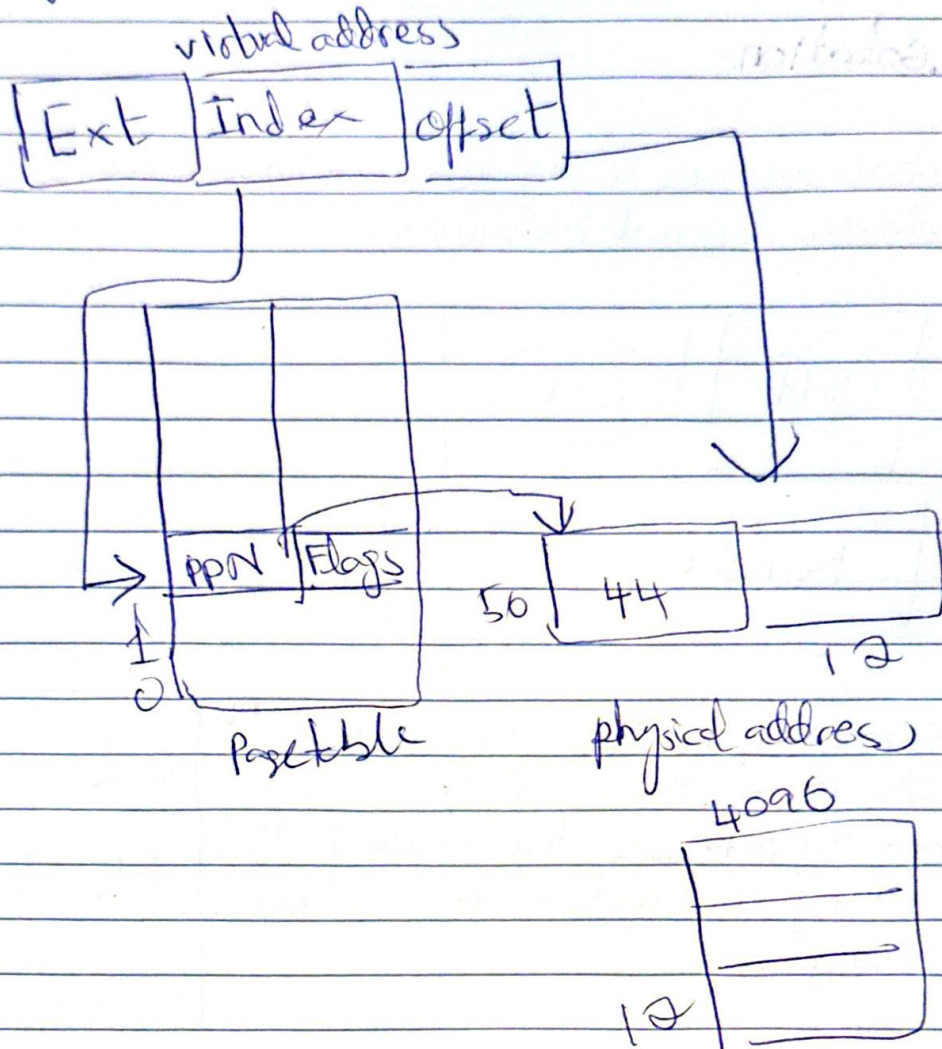 virtual address
Ext Index offset
PPN Flags
56 44
1
12
0
Pagetable physical address
4096
12